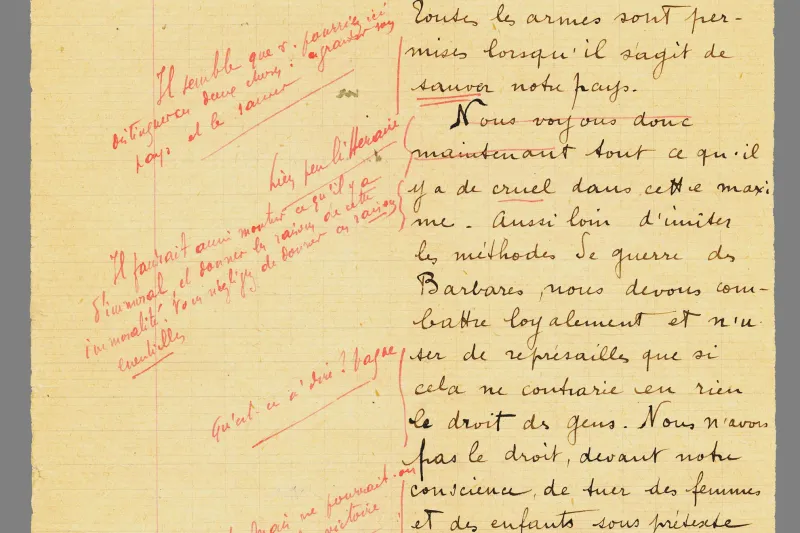 Toutes les armes sont per-
mises lorsqu'il s'agit de
sauver notre pays.
Nous voyons donc
maintenant tout ce qu'il
y a de cruel dans cette maxi
me. Aussi loin d'imiter
les méthodes de guerre des
Barbares, nous devons com-
battre loyalement et n'u
ser de représailles que si
cela ne contrarie en rien
le droit des gens. Nous n'avons
pas le droit, devant notre
conscience, de tuer des femmes
et des enfants sous prétexte
Il semble que v. pourriez ici
distinguer deux choses : agrandir son
pays et le sauver
bien peu littéraire
Il faudrait aussi montrer ce qu'il y a
d'immoral, et donner les raisons de cette
immoralité. Vous négligez de donner ces raisons
essentielles
Qu'est-ce à dire ? Vague
mais ne pourrait-on
victoire